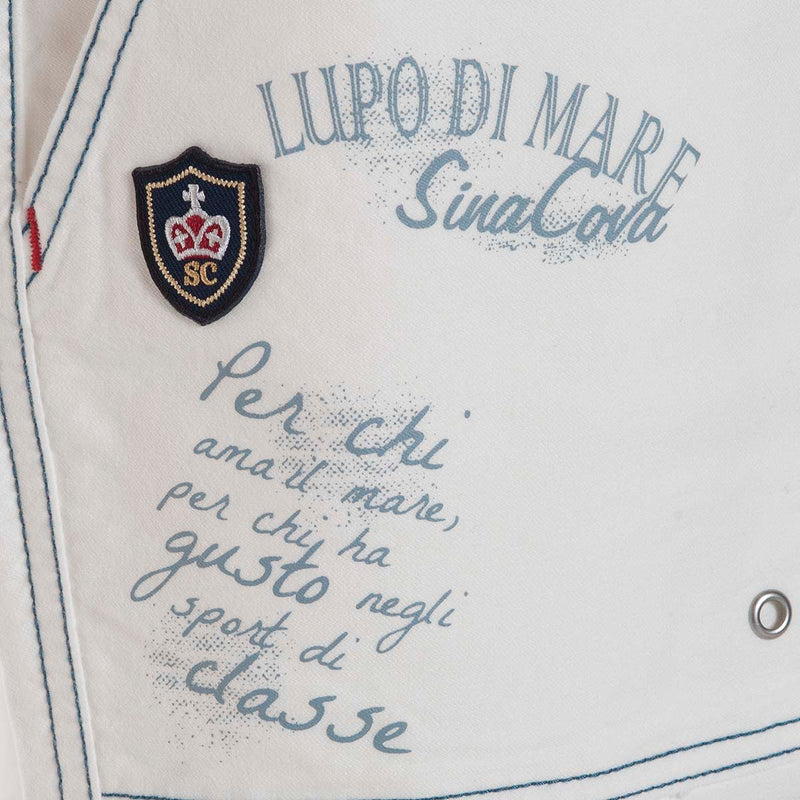 LUPO DI MARE
SinaCova
SC
Per chi
ama il mare,
per chi ha
gusto negli
sport di
classe